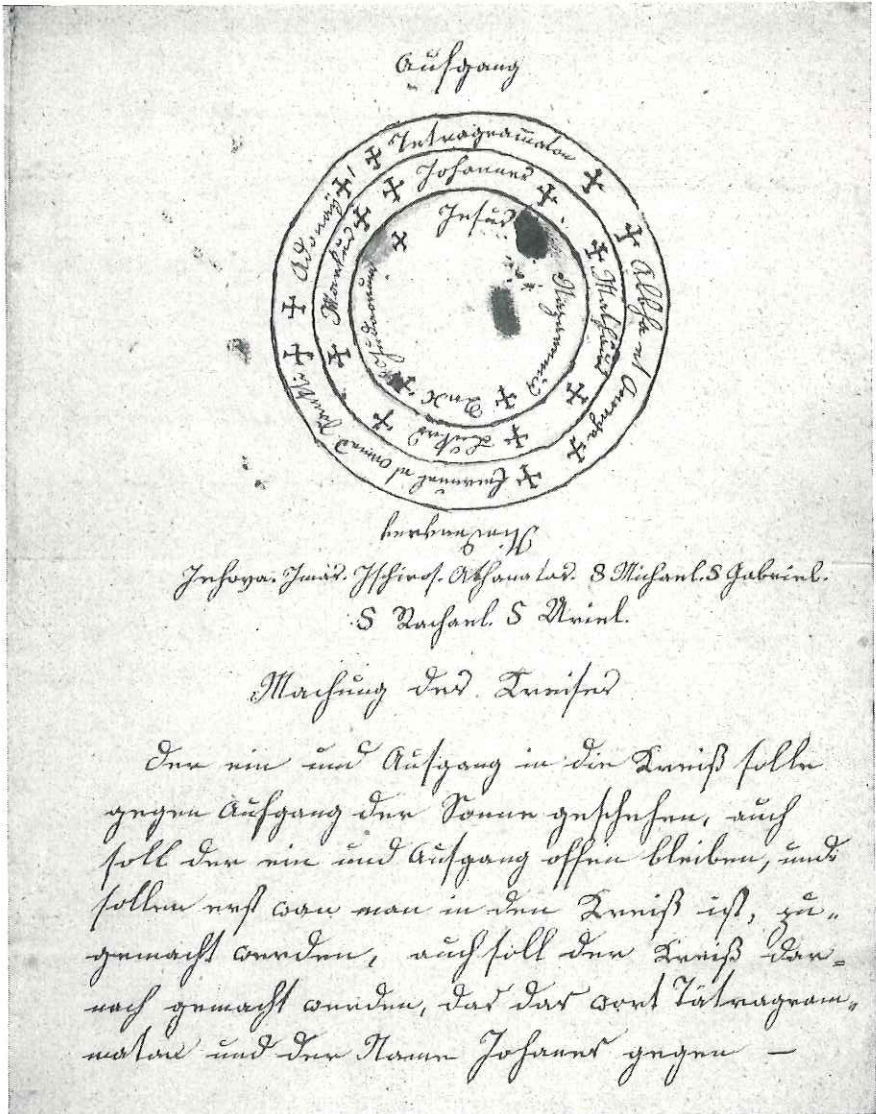 Aufgang
✠ Tetragramaton ✠
✠ Alpha et Omega ✠
✠ Emanuel et Agnus
✠ Adonaÿ ✠
✠ Johannes ✠
✠ Mathäus ✠
✠ Lukas ✠
✠ Markus ✠
Jesus
Nazarenus
✠ Rex ✠
Judaeorum ✠
Niedergang
Jehova. Imas. Ischiros. Athanatos. S Michael. S Gabriel.
S Rachael. S Uriel.
Machung des Kreises
Der ein und Ausgang in die Kreiß solle
gegen Aufgang der Sonne geschehen, auch
soll der ein und Ausgang offen bleiben, und
sollen erst wan man in den Kreiß ist, zu-
gemacht werden, auch soll der Kreiß dar-
nach gemacht werden, das das wort Tätragram-
maton und der Name Johanes gegen —